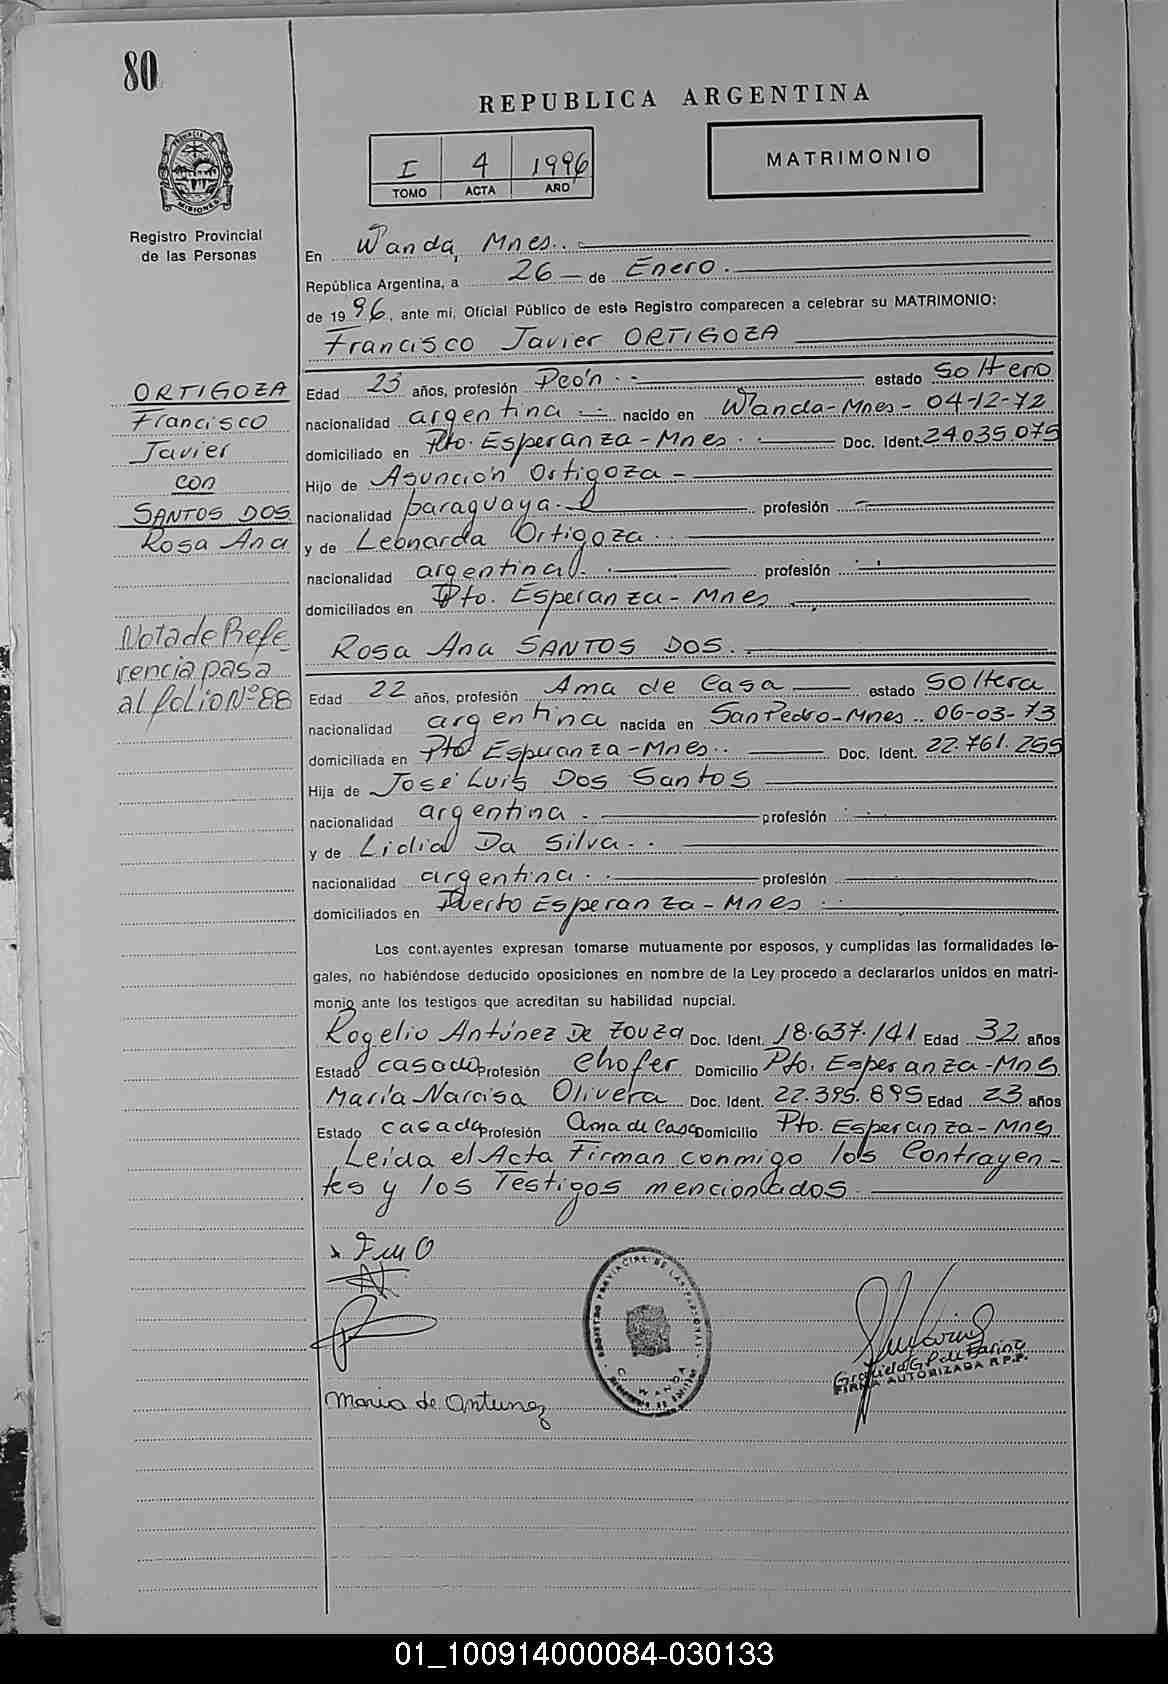 80
REPUBLICA ARGENTINA
I 4 1996
TOMO ACTA AÑO
MATRIMONIO
PROVINCIA DE
MISIONES
Registro Provincial
de las Personas
En Wanda, Mnes.
República Argentina, a 26 de Enero.
de 1996, ante mí, Oficial Público de este Registro comparecen a celebrar su MATRIMONIO:
Francisco Javier ORTIGOZA
ORTIGOZA
Francisco
Javier
con
SANTOS DOS
Rosa Ana
Nota de Refe-
rencia pasa
al folio Nº 88
Edad 23 años, profesión Peón. estado Soltero
nacionalidad argentina nacido en Wanda-Mnes- 04-12-72
domiciliado en Pto. Esperanza-Mnes. Doc. Ident. 24.035.075
Hijo de Asunción Ortigoza
nacionalidad paraguaya. profesión
y de Leonarda Ortigoza.
nacionalidad argentina. profesión
domiciliados en Pto. Esperanza-Mnes
Rosa Ana SANTOS DOS.
Edad 22 años, profesión Ama de Casa estado Soltera
nacionalidad argentina nacida en San Pedro-Mnes.. 06-03-73
domiciliada en Pto Esperanza-Mnes.. Doc. Ident. 22.761.255
Hija de José Luis Dos Santos
nacionalidad argentina. profesión
y de Lidia Da Silva.
nacionalidad argentina. profesión
domiciliados en Puerto Esperanza-Mnes
Los cont.ayentes expresan tomarse mutuamente por esposos, y cumplidas las formalidades le-
gales, no habiéndose deducido oposiciones en nombre de la Ley procedo a declararlos unidos en matri-
monio ante los testigos que acreditan su habilidad nupcial.
Rogelio Antúnez De Zouza Doc. Ident. 18.637.141 Edad 32 años
Estado casado Profesión Chofer Domicilio Pto. Esperanza-Mnes
María Narcisa Olivera Doc. Ident. 22.395.895 Edad 23 años
Estado casada Profesión Ama de Casa Domicilio Pto. Esperanza-Mnes
Leída el Acta Firman conmigo los Contrayen-
tes y los Testigos mencionados.
REGISTRO PROVINCIAL DE LAS PERSONAS
WANDA
Maria de Antunez
Graciela G. P. de Farino
FIRMA AUTORIZADA R.P.P.
01_100914000084-030133